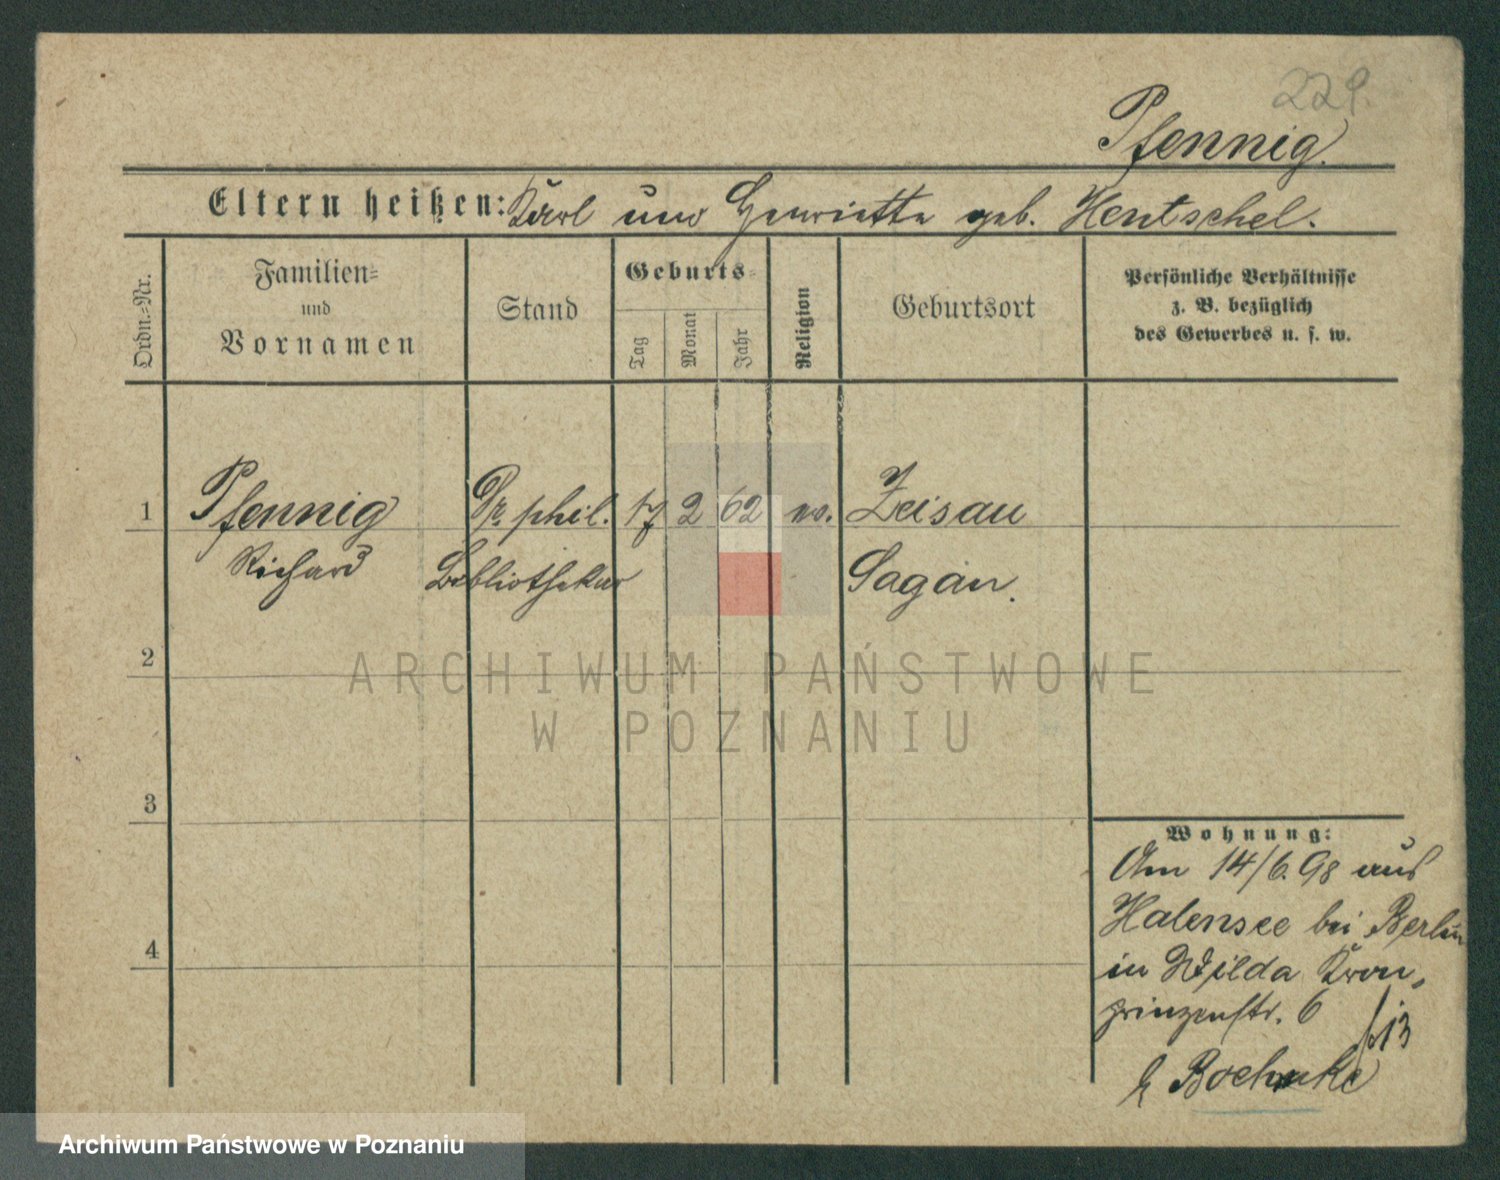 229.
Pfennig.
Eltern heißen: Karl und Henriette geb. Hentschel.
Ordn.-Nr.
Familien-
und
Vornamen
Stand
Geburts-
Tag
Monat
Jahr
Religion
Geburtsort
Persönliche Verhältnisse
z. B. bezüglich
des Gewerbes u. s. w.
1 Pfennig Dr. phil. 17 2 62 ev. Zeisau
Richard Bibliothekar Sagan.
2
3
4
Wohnung:
Am 14/6.98 aus
Halensee bei Berlin
in Wilda Kron-
prinzenstr. 6
b Boehnke
ARCHIWUM PAŃSTWOWE
W POZNANIU
Archiwum Państwowe w Poznaniu